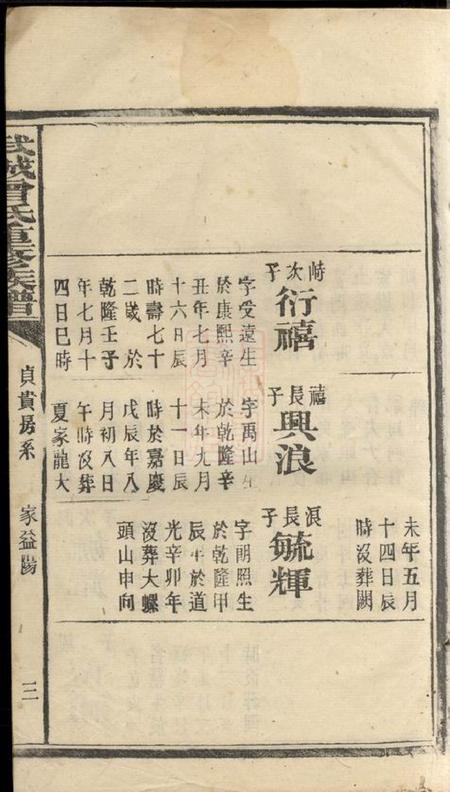 未年五月
十四日辰
時沒葬闕
時次子
衍禧
字受遠生
於康熙辛
丑年七月
十六日辰
時壽七十
二歲於
乾隆壬子
年七月十
四日巳時
禧長子
興浪
字禹山生
於乾隆辛
未年九月
十一日辰
時於嘉慶
戊辰年八
月初八日
午時沒葬
夏家龍大
浪長子
毓輝
字明照生
於乾隆甲
辰年於道
光辛卯年
沒葬大螺
頭山申向
武城曾氏重修族譜
貞貴房系
家益陽
三